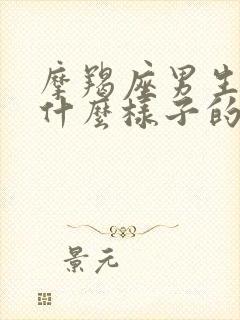 摩羯座男生
什麼樣子的
景元